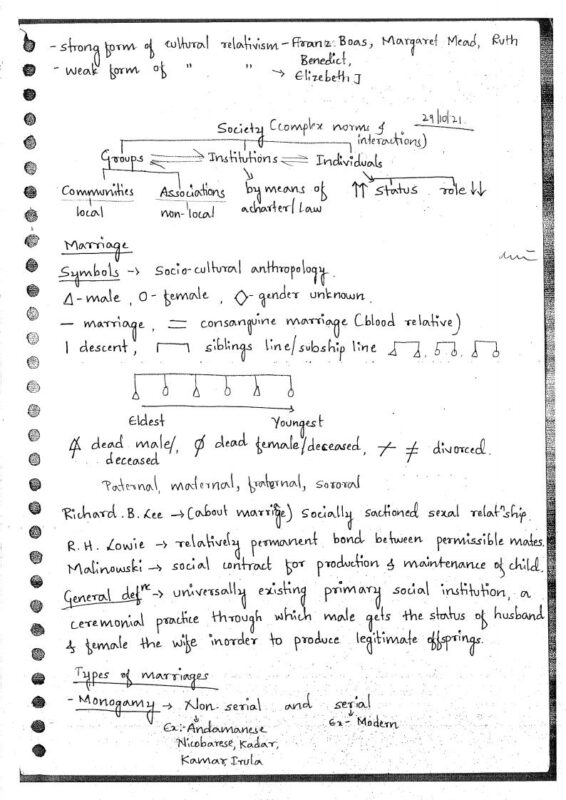 - strong form of cultural relativism - Franz. Boas, Margaret Mead, Ruth Benedict,
- weak form of " " → Elizebeth J
29/10/21
Society (complex norms & interactions)
Groups Institutions Individuals
Communities Associations by means of ↑↑ status role ↓↓
local non-local acharter/Law
Marriage
Symbols → socio-cultural anthropology
Δ - male, O - female, ◇ - gender unknown.
— marriage, = consanguine marriage (blood relative)
| descent, siblings line/subship line
Eldest Youngest
dead male/, Ø dead female/deceased, ≠ divorced.
deceased
Paternal, maternal, fraternal, sororal
Richard. B. Lee → (about marrige) socially sactioned sexal relatnship
R. H. Lowie → relatively permanent bond between permissible mates.
Malinowski → social contract for production & maintenance of child.
General defne → universally existing primary social institution, a
ceremonial practice through which male gets the status of husband
& female the wife inorder to produce legitimate offsprings.
Types of marriages
- Monogamy → Non-serial and serial
Ex:- Andamanese Ex:- Modern
Nicobarese, Kadar,
Kamar, Irula